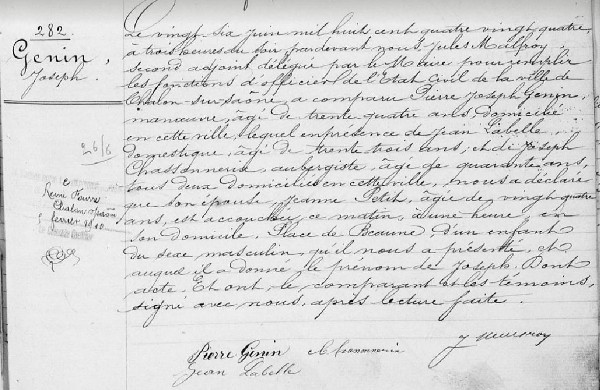 282.
Genin,
Joseph.
Le vingt six juin mil huit cent quatre vingt quatre,
à trois heures du soir pardevant nous Jules Malfroy
second adjoint délégué par le Maire pour remplir
les fonctions d'officier de l'Etat Civil de la ville de
Chalon-sur-Saône, a comparu Pierre Joseph Genin,
manœuvre, âgé de trente quatre ans, domicilié
en cette ville, lequel en présence de Jean Labelle
domestique, âgé de trente trois ans, et de Joseph
Chassonnerie, aubergiste, âgé de quarante ans,
tous deux domiciliés en cette ville, nous a déclaré
que son épouse, Jeanne Petit, âgée de vingt quatre
ans, est accouchée, ce matin, à une heure, en
son domicile, Place de Beaune, d'un enfant
du sexe masculin, qu'il nous a présenté, et
auquel il a donné le prénom de Joseph. Dont
acte. Et ont le comparant et les témoins,
signé avec nous, après lecture faite.
26/6
février 1910
Pierre Genin
Jean Labelle